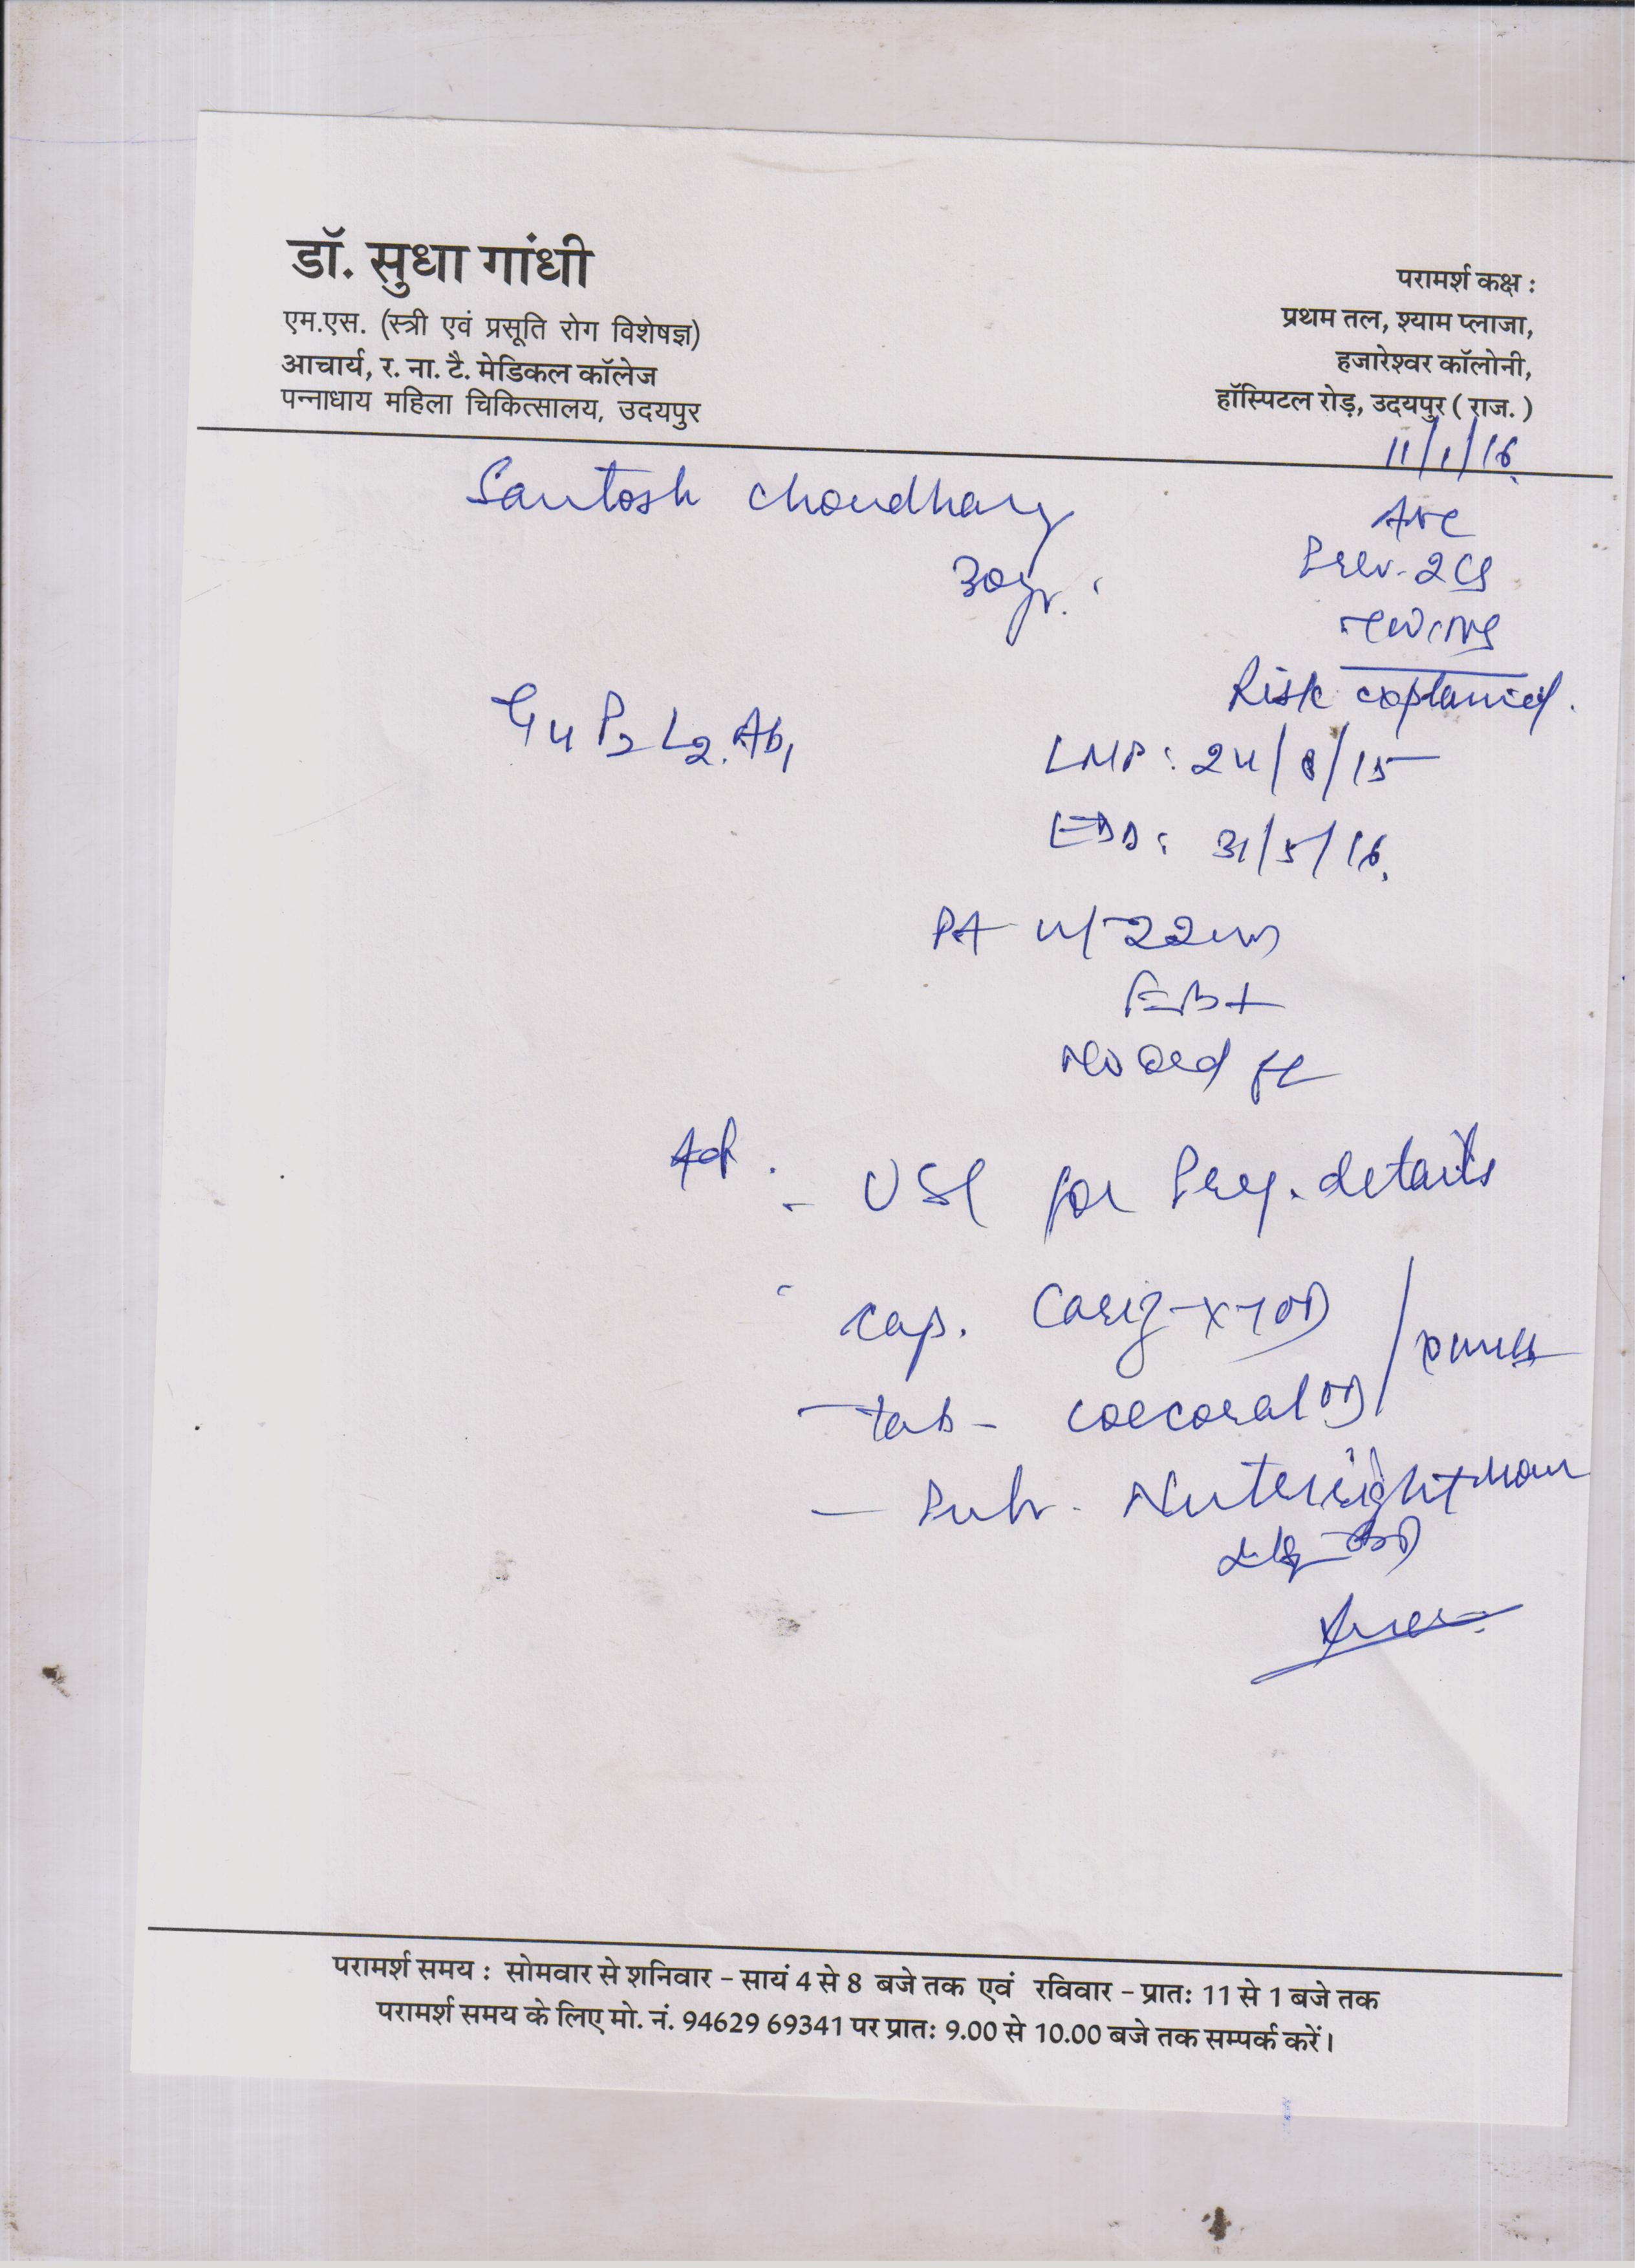 डॉ. सुधा गांधी
एम.एस. (स्त्री एवं प्रसूति रोग विशेषज्ञ)
आचार्य, र. ना. टै. मेडिकल कॉलेज
पन्नाधाय महिला चिकित्सालय, उदयपुर
परामर्श कक्ष :
प्रथम तल, श्याम प्लाजा,
हजारेश्वर कॉलोनी,
हॉस्पिटल रोड़, उदयपुर ( राज. )
11/1/16
Santosh Choudhary
30yr.
ANC
Prev. 2 CS
Risk explained.
G4 P2 L2 Ab1
LMP: 24/8/15
EDD: 31/5/16
PA
FB+
No
Ad.
- USG for Preg. details
- Cap. OD
- tab - OD
-
परामर्श समय : सोमवार से शनिवार - सायं 4 से 8 बजे तक एवं रविवार - प्रातः 11 से 1 बजे तक
परामर्श समय के लिए मो. नं. 94629 69341 पर प्रातः 9.00 से 10.00 बजे तक सम्पर्क करें।